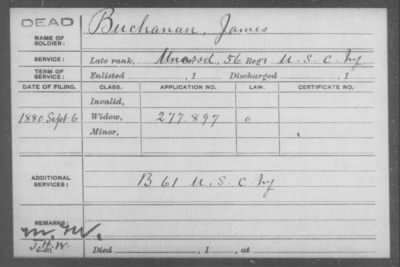 DEAD
NAME OF SOLDIER: Buchanan, James
SERVICE: Late rank, Unassd, 56 Reg't U. S. C. Inf
TERM OF SERVICE: Enlisted , 1 Discharged , 1
DATE OF FILING. CLASS. APPLICATION NO. LAW. CERTIFICATE NO.
Invalid,
1880 Sept 6 Widow, 277.897 o
Minor,
ADDITIONAL SERVICES: B 61 U. S. C. Inf
REMARKS:
Died , 1 , at